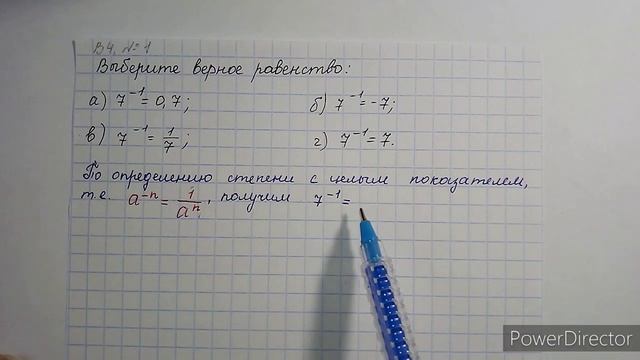 В4, №1
Выберите верное равенство:
а) 7⁻¹ = 0,7; б) 7⁻¹ = -7;
в) 7⁻¹ = 1/7; г) 7⁻¹ = 7.
По определению степени с целым показателем,
т.е. a⁻ⁿ = 1/aⁿ, получим 7⁻¹ =
PowerDirector